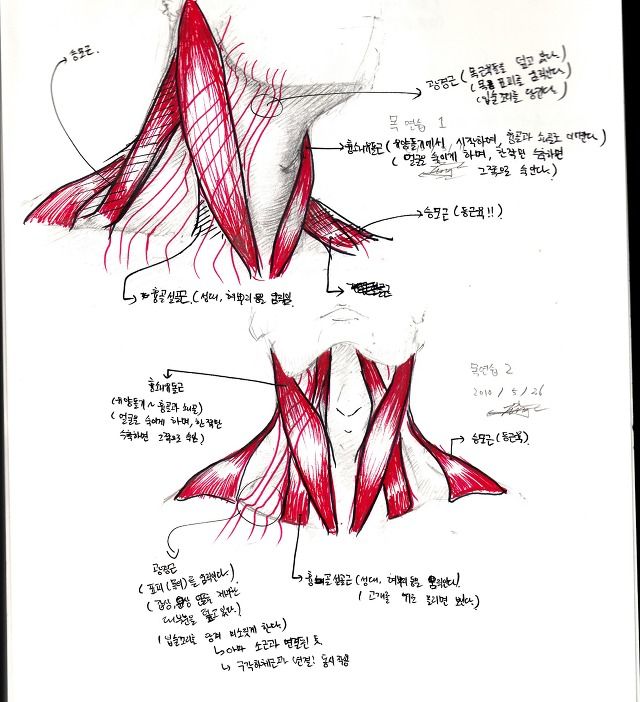 승모근.
광경근 (목근육들을 덮고 있다.)
(목 표피를 움직인다.)
(입술꼬리를 당긴다.)
목 연습 1
흉쇄유돌근 (유양돌기에서 시작하며, 흉골과 쇄골로 이어진다)
(얼굴을 숙이게 하며, 한쪽만 수축하면
그쪽으로 숙인다.)
승모근 (등근육!!)
흉골설골근 (성대, 혀뿌리 등을 움직임.
목연습 2
2010 / 5 / 26
흉쇄유돌근
(유양돌기 ~ 흉골과 쇄골)
(얼굴을 숙이게 하며, 한쪽만
수축하면 그쪽으로 숙인)
승모근 (등근육).
광경근
(표피(목의)를 움직인다.)
덮고 있다.)
(입술꼬리를 당겨 미소짓게 한다.)
↳ 아마 소근과 연결된 듯
↳ 구각하체근과 연결? 동시 작용
흉골설골근 (성대, 혀뿌리 등을 움직인다.
(고개를 위로 올리면 보인다.)